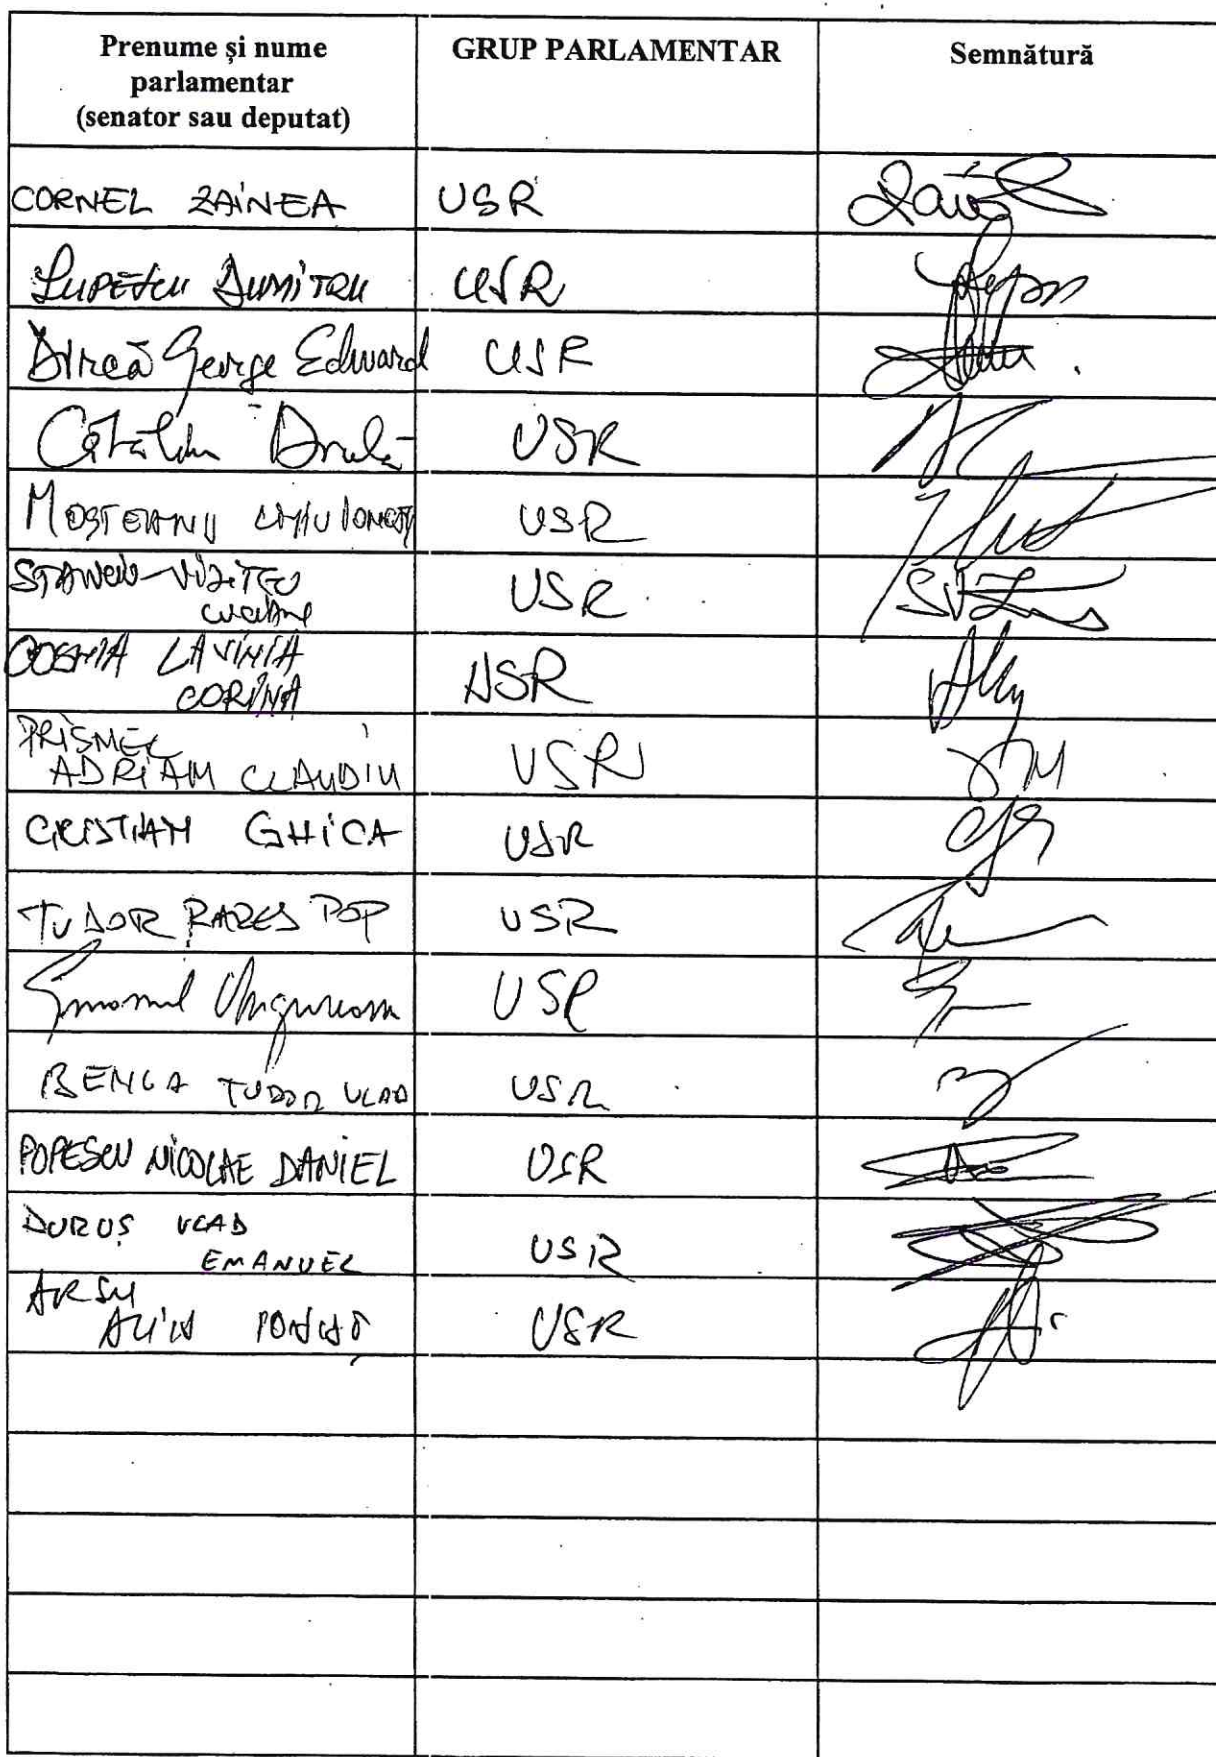 Prenume și nume
parlamentar
(senator sau deputat)
GRUP PARLAMENTAR
Semnătură
CORNEL ZAINEA USR
LUPESCU DUMITRU USR
George Edward USR
Cătălin Drulă USR
MOȘTEANU USR
STANCIU-VIZITEU USR
COSMA LAVINIA USR
CORINA
PRISNEL USR
ADRIAN CLAUDIU
CRISTIAN GHICA USR
TUDOR RAREȘ POP USR
Emanuel Ungureanu USR
BENGA TUDOR VLAD USR
POPESCU NICOLAE DANIEL USR
DURUȘ VLAD
EMANUEL USR
USR